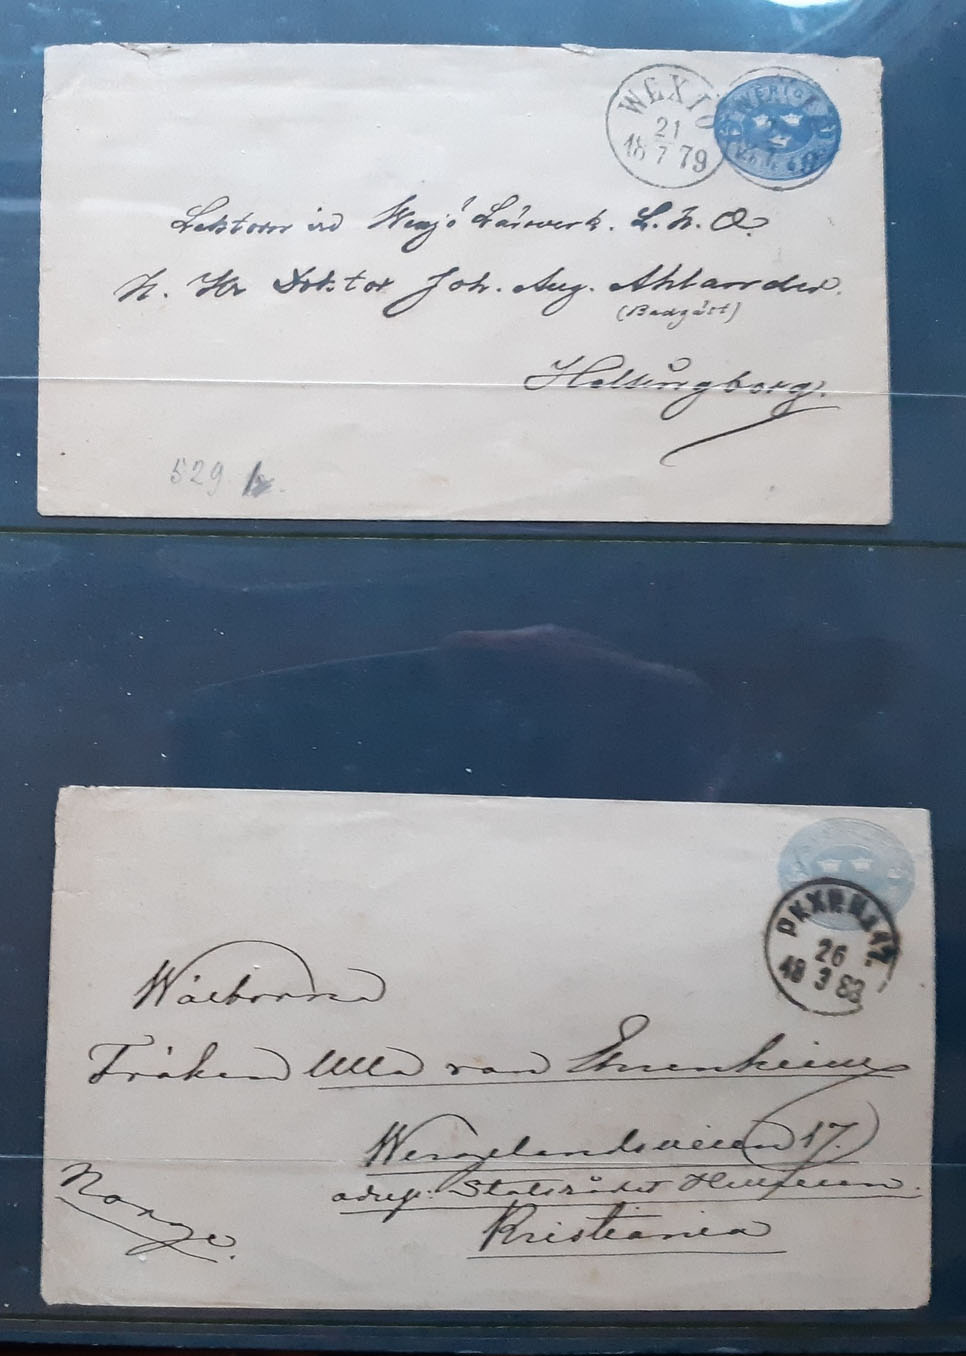 WEXIÖ
21
18 7 79
SVERIGE
Lektorn vid Wexjö Lärowerk. L. N. O.
H. Hr Doktor Joh. Aug. Ahlander.
(Badgäst)
Helsingborg.
529
26
18 3 83
Wälborna
Fröken Ulla von Ehrenheim
Wergelandsveien 17.
adress: Statsrådet
Kristiania
Norge.